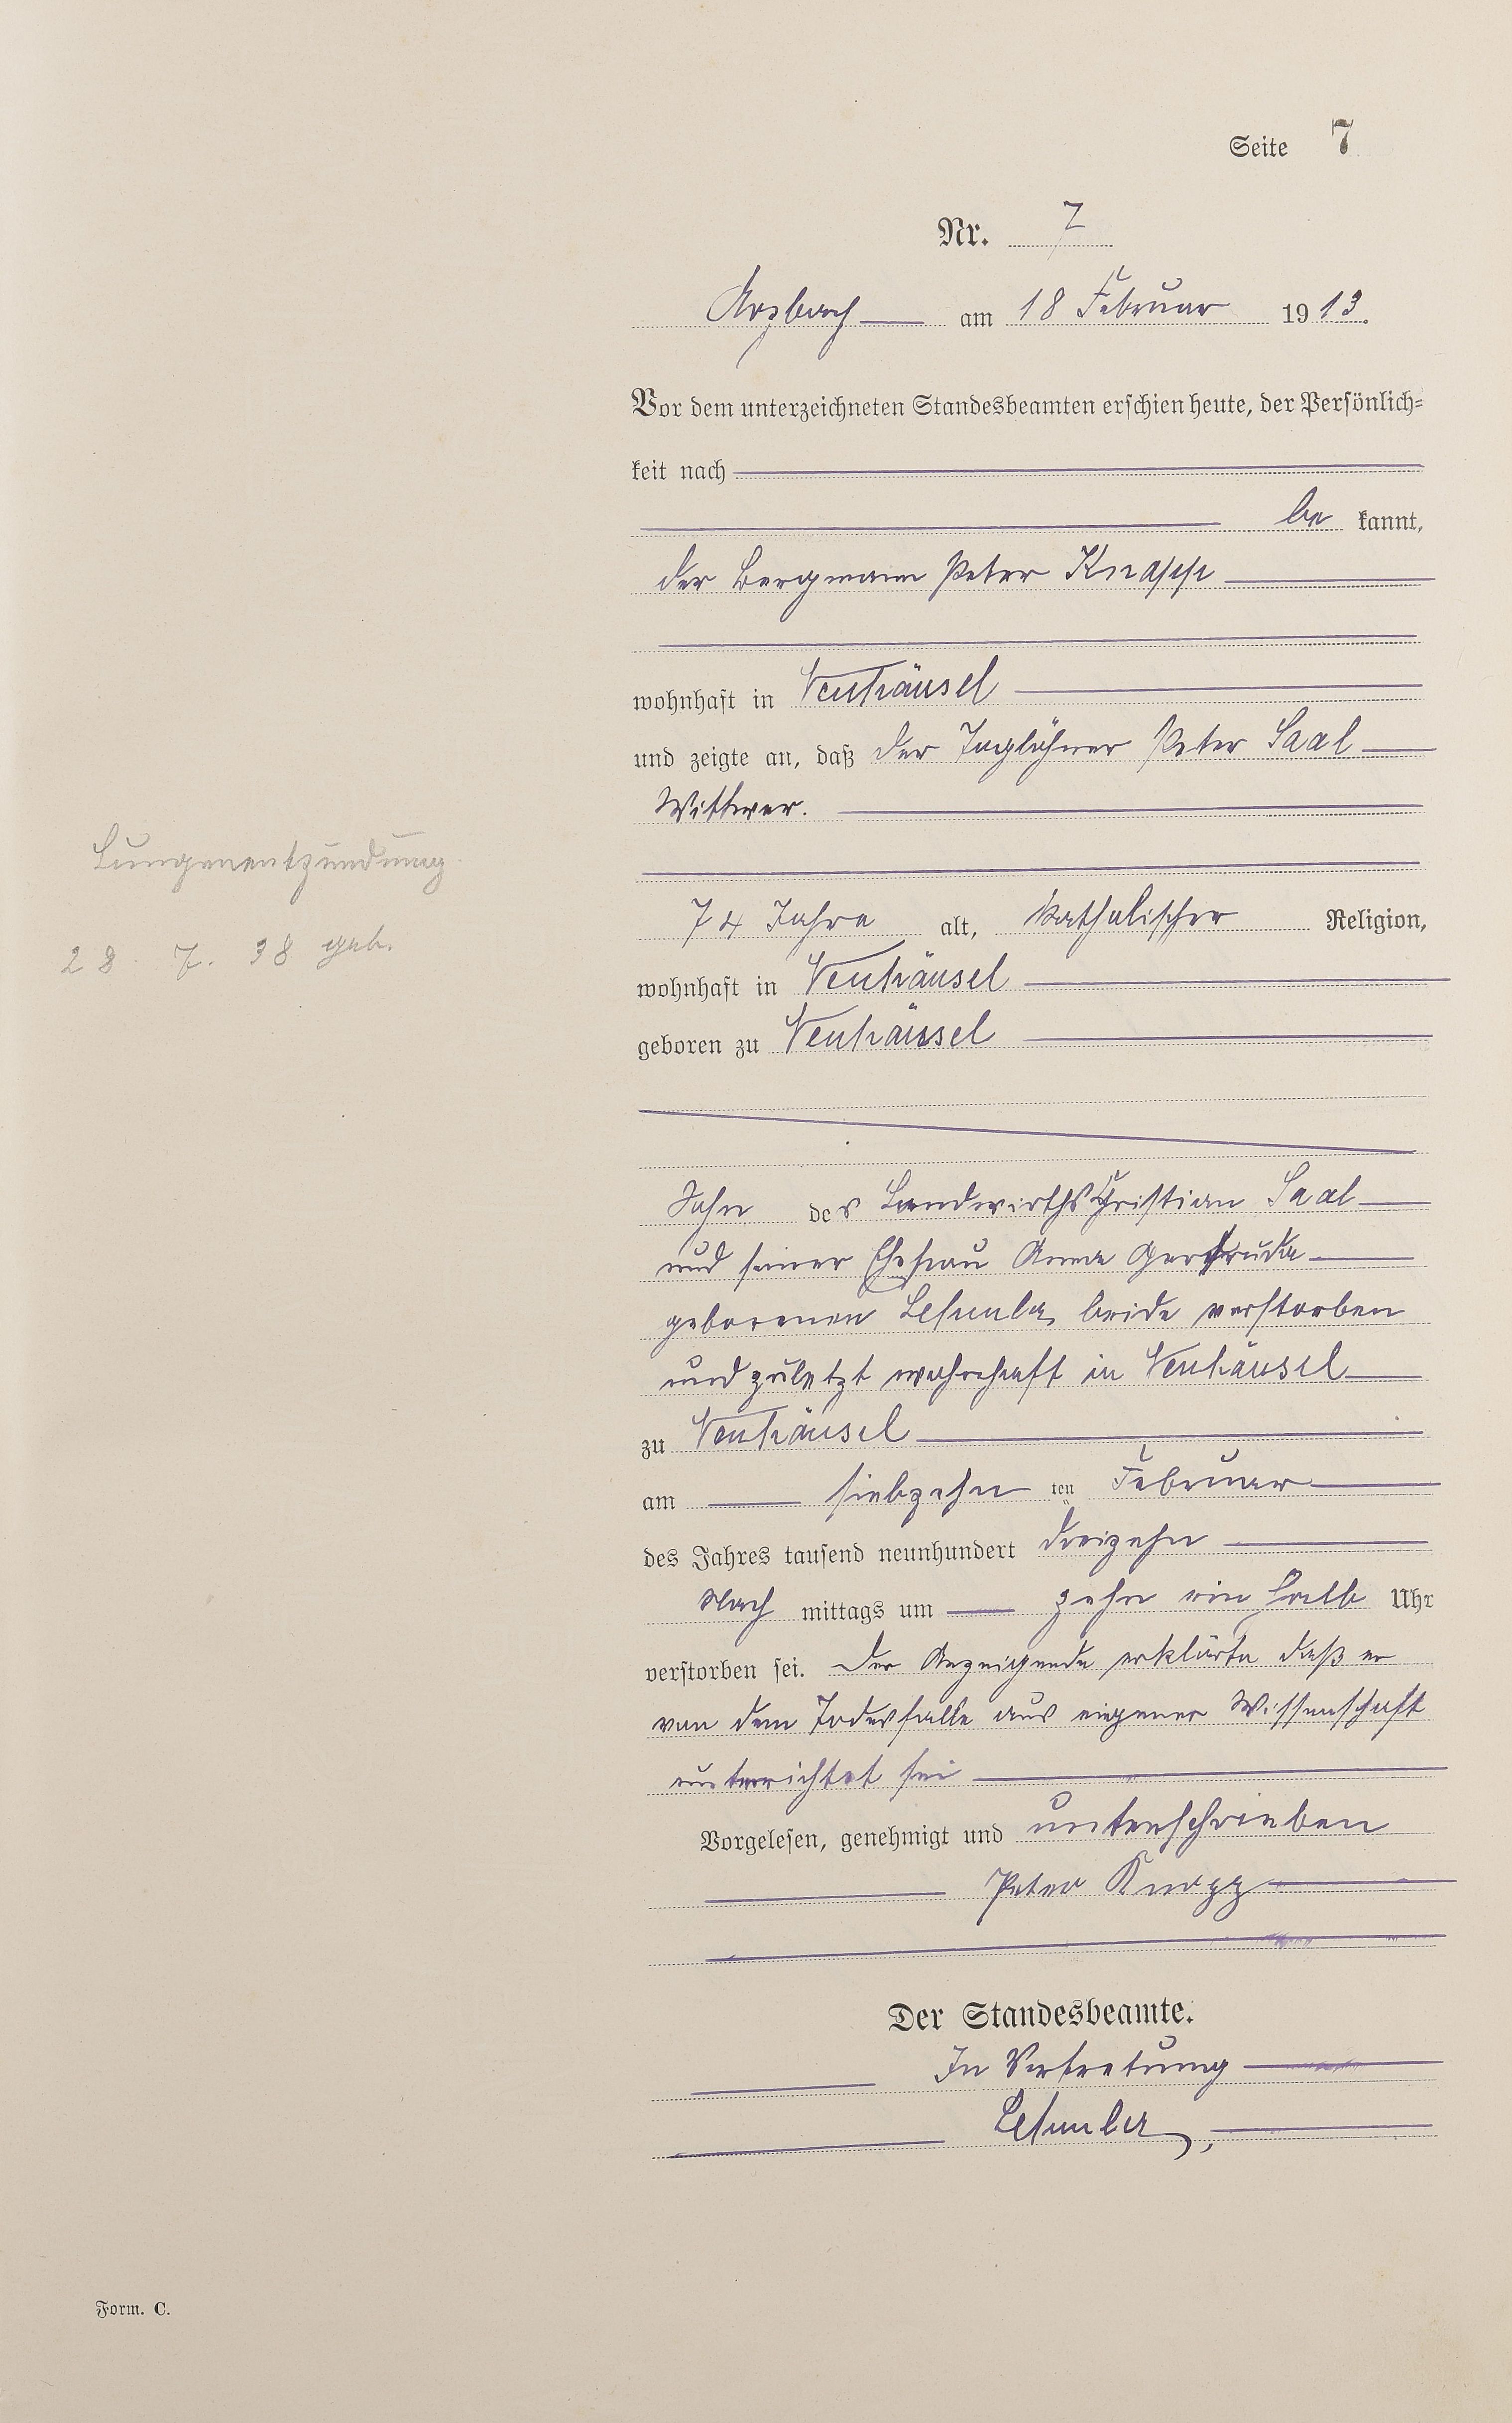 Seite 7
Nr. 7
Arzbach am 18 Februar 1913.
Vor dem unterzeichneten Standesbeamten erschien heute, der Persönlich=
keit nach
be kannt,
der Bergmann Peter Knapp
wohnhaft in Neuhäusel
und zeigte an, daß der Taglöhner Peter Saal
Wittwer.
Lungenentzündung
74 Jahre alt, katholischer Religion,
28. 7. 38 geb.
wohnhaft in Neuhäusel
geboren zu Neuhäusel
Sohn des Landwirths Christian Saal
und seiner Ehefrau Anna Gertruda
geborenen beide verstorben
und zuletzt wohnhaft in Neuhäusel
zu Neuhäusel
am siebzehn ten Februar
des Jahres tausend neunhundert dreizehn
Nach mittags um zehn ein halb Uhr
verstorben sei. Der Anzeigende erklärte daß er
von dem Todesfalle aus eigener Wissenschaft
unterrichtet sei
Vorgelesen, genehmigt und unterschrieben
Peter Knapp
Der Standesbeamte.
In Vertretung
Form. C.